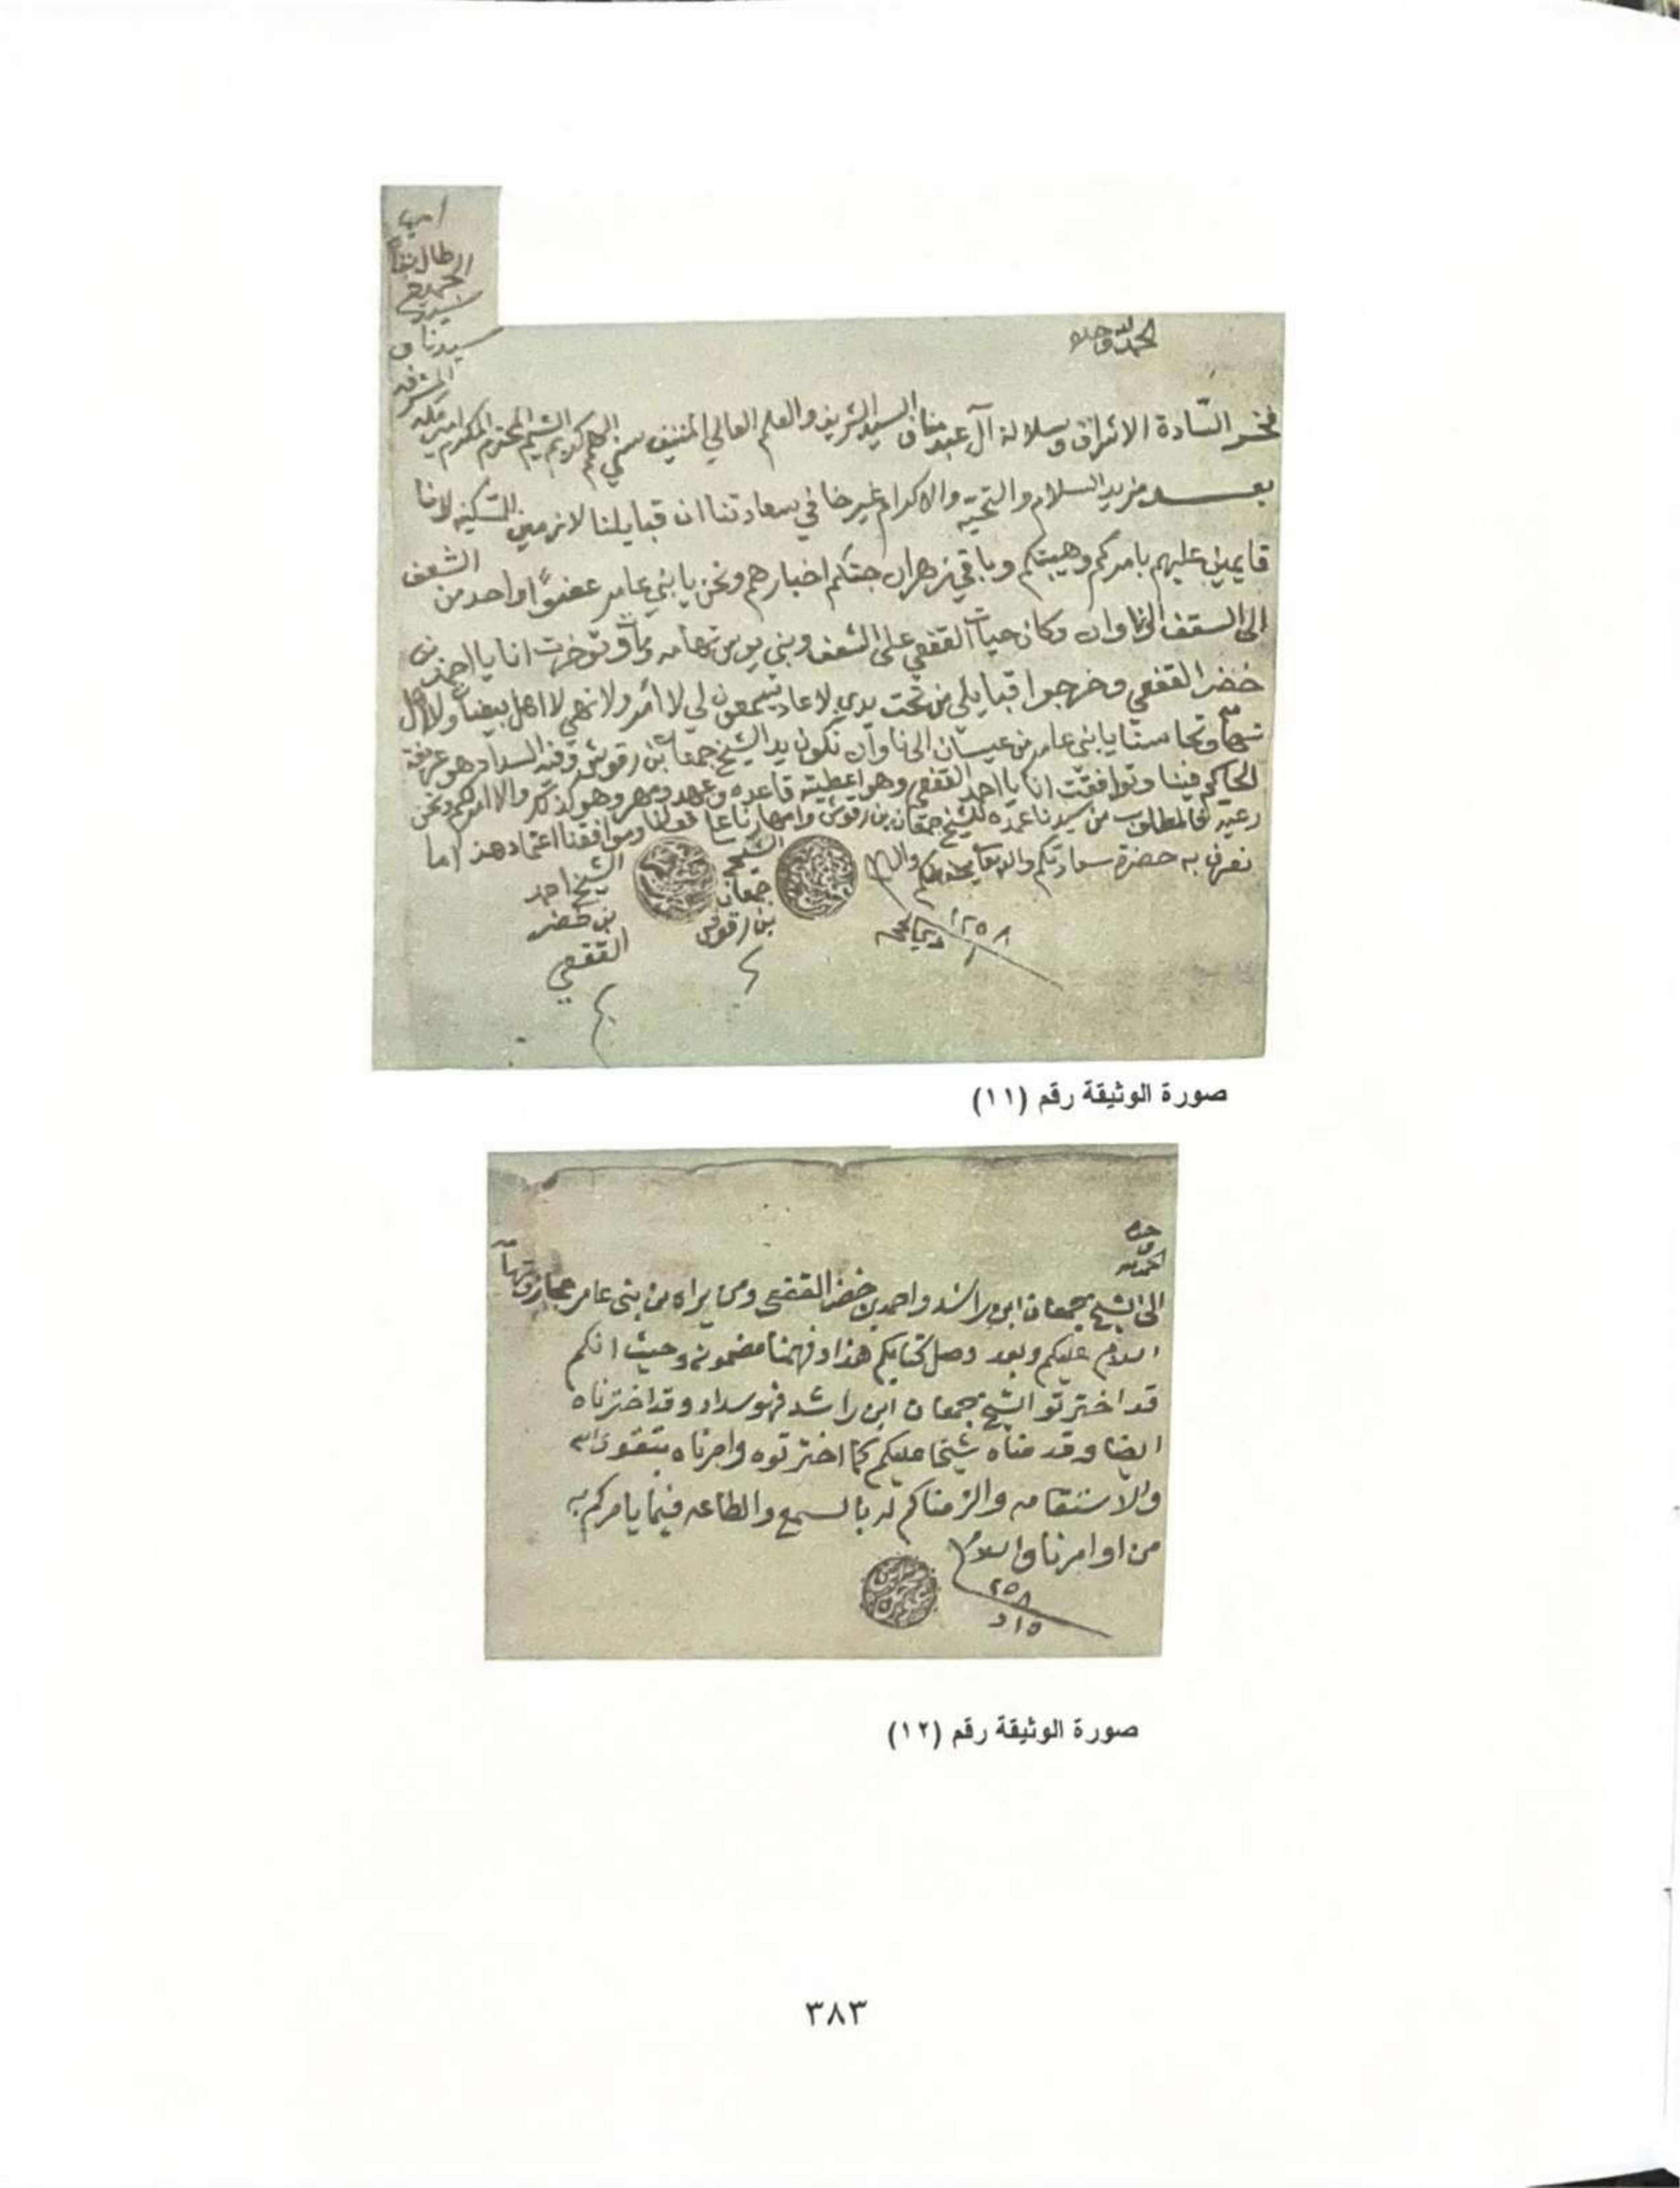 الحمد لله وحده
فخر السّادة الاشراف وسلالة آل عبد مناف السيد الشريف والعلم العالي المنيف الكريم الشيم المحترم المكرم امير مكه
المشرفه
سيدنا
بعد مزيد السلام والتحيّه والاكرام غير خافي سعادتنا ان قبايلنا لازمين السكينه لانا
قايمين عليهم بامركم وهيبتكم وباقي زهران جتكم اخبارهم ونحن يا بني عامر عضوًا واحد من الشعف
الى السقف الى ناوان وكان حيات القفعي على الشعف وبني يوس تهامه ومات وتوخرت انا يا احمد بن
خضر القفعي وخرجوا قبايلي من تحت يدي لا عاد يسمعون لي لا أمر ولا نهي لا اهل بيضان ولا اهل
تهامه يا بني عامر من عيسان الى ناوان نكون يد الشيخ جمعان بن رقوش وفيه السداد وهو
الحاكم فينا وتوافقت انا يا احمد القفعي وهو اعطيته قاعده وعهد وهو كذلك والامر لكم ونحن
رعيه فالمطلوب من سيدنا عمده للشيخ جمعان بن رقوش وموافقنا اعتماد هذا ما
نعرف به حضرة سعادتكم والله تعالى يحفظكم والسلام
١٢٥٨
الشيخ
جمعان
بن رقوش
الشيخ احمد
بن خضر
القفعي
صورة الوثيقة رقم (١١)
الحمد لله
وحده
الى الشيخ جمعان ابن راشد واحمد بن خضر القفعي ومن يراه من بني عامر حجاز وتهامه
السلام عليكم وبعد وصل كتابكم هذا وفهمنا مضمونه وحيث انكم
قد اخترتو الشيخ جمعان ابن راشد فهو سداد وقد اخترناه
ايضا وقدمناه شيخا عليكم كما اخترتوه وامرناه بتقوى الله
والاستقامه والزمناكم له بالسمع والطاعه فيما يامركم به
من اوامرنا والسلام
٢٥٨
١٥ د
صورة الوثيقة رقم (١٢)
٣٨٣